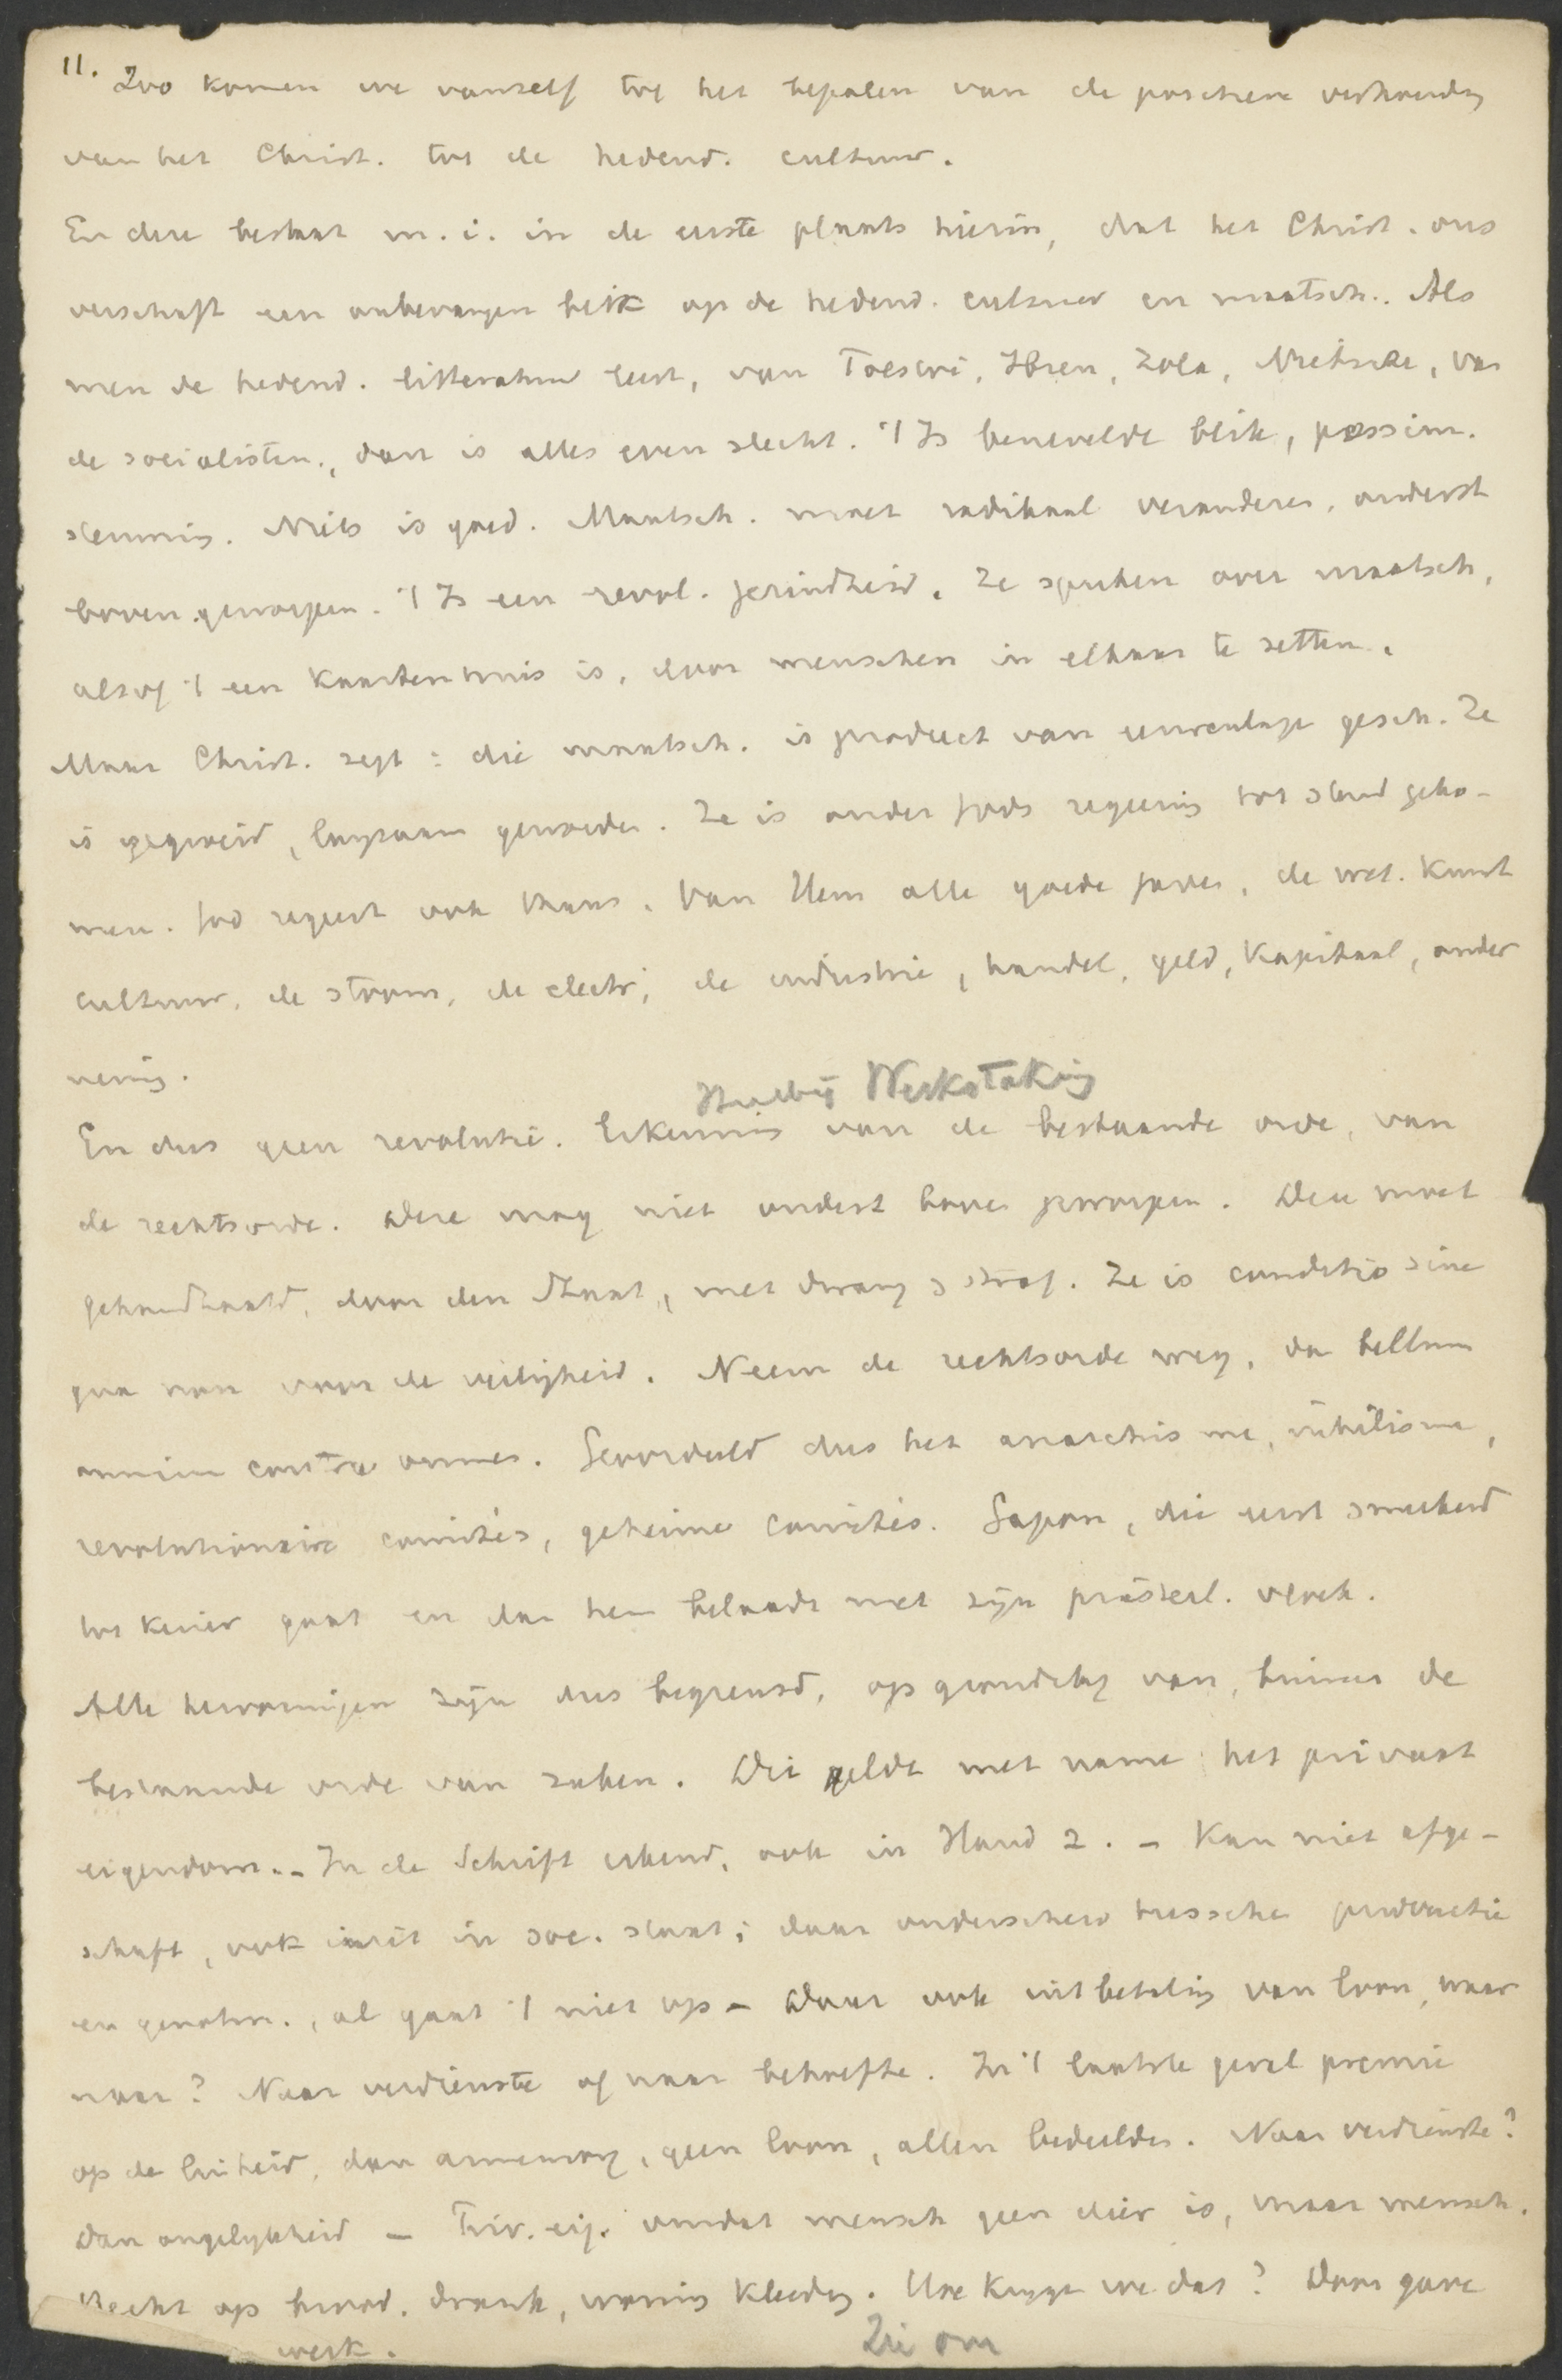 11. Zoo komen we vanzelf tot het bepalen van de positieve verhouding
van het Christ. tot de hedend. cultuur.
En deze bestaat m.i. in de eerste plaats hierin, dat het Christ. ons
verschaft een onbevangen blik op de hedend. cultuur en maatsch.. Als
men de hedend. litteratuur leest, van Tolstoi, Ibsen, Zola, Nietsche, van
de socialisten., dan is alles even slecht. 't Is benevelde blik, pessim.
stemming. Niets is goed. Maatsch. moet radikaal veranderen, onderst
boven geworpen. 't Is een revol. gezindheid. Ze spreken over maatsch.
alsof 't een kaartenhuis is, door menschen in elkaar te zetten.
Maar Christ. zegt: die maatsch. is product van eeuwenlange gesch. Ze
is gegroeid, langzaam geworden. Ze is onder Gods regeering tot stand geko-
men. God regeert ook thans. Van Hem alle goede gaven, de wet. kunst
cultuur, de stoom, de electr, de industrie, handel, geld, kapitaal, onder
neming.
Hierbij Werkstaking
En dus geen revolutie. Erkenning van de bestaande orde, van
de rechtsorde. Deze mag niet onderst boven geworpen. Deze moet
gehandhaafd, door den Staat, met dwang & straf. Ze is conditio sine
qua non voor de veiligheid. Neem de rechtsorde weg, dan bellum
omnium contra omnes. Geoordeeld dus het anarchisme, nihilisme,
revolutionaire comités, geheime comités. Gapon, die eerst smeekend
tot keizer gaat en dan hem belaadt met zijn priesterl. vloek.
Alle hervormingen zijn dus begrensd, op grondslag van, binnen de
bestaande orde van zaken. Dit geldt met name het privaat
eigendom. - In de Schrift erkend, ook in Hand 2. - Kan niet afge-
schaft, ook niet in soc. staat; daar onderscheid tusschen productie
en genotm., al gaat 't niet op - Daar ook uitbetaling van loon, waar
naar? Naar verdienste of naar behoefte. In 't laatste geval premie
op de luiheid, dan armenzorg, geen loon, allen bedeelden. Naar verdienste?
Dan ongelijkheid - Priv. eig. omdat mensch geen dier is, maar mensch.
Recht op brood, drank, woning kleeding. Hoe krijgt we dat? Door gave
werk.
Zie om